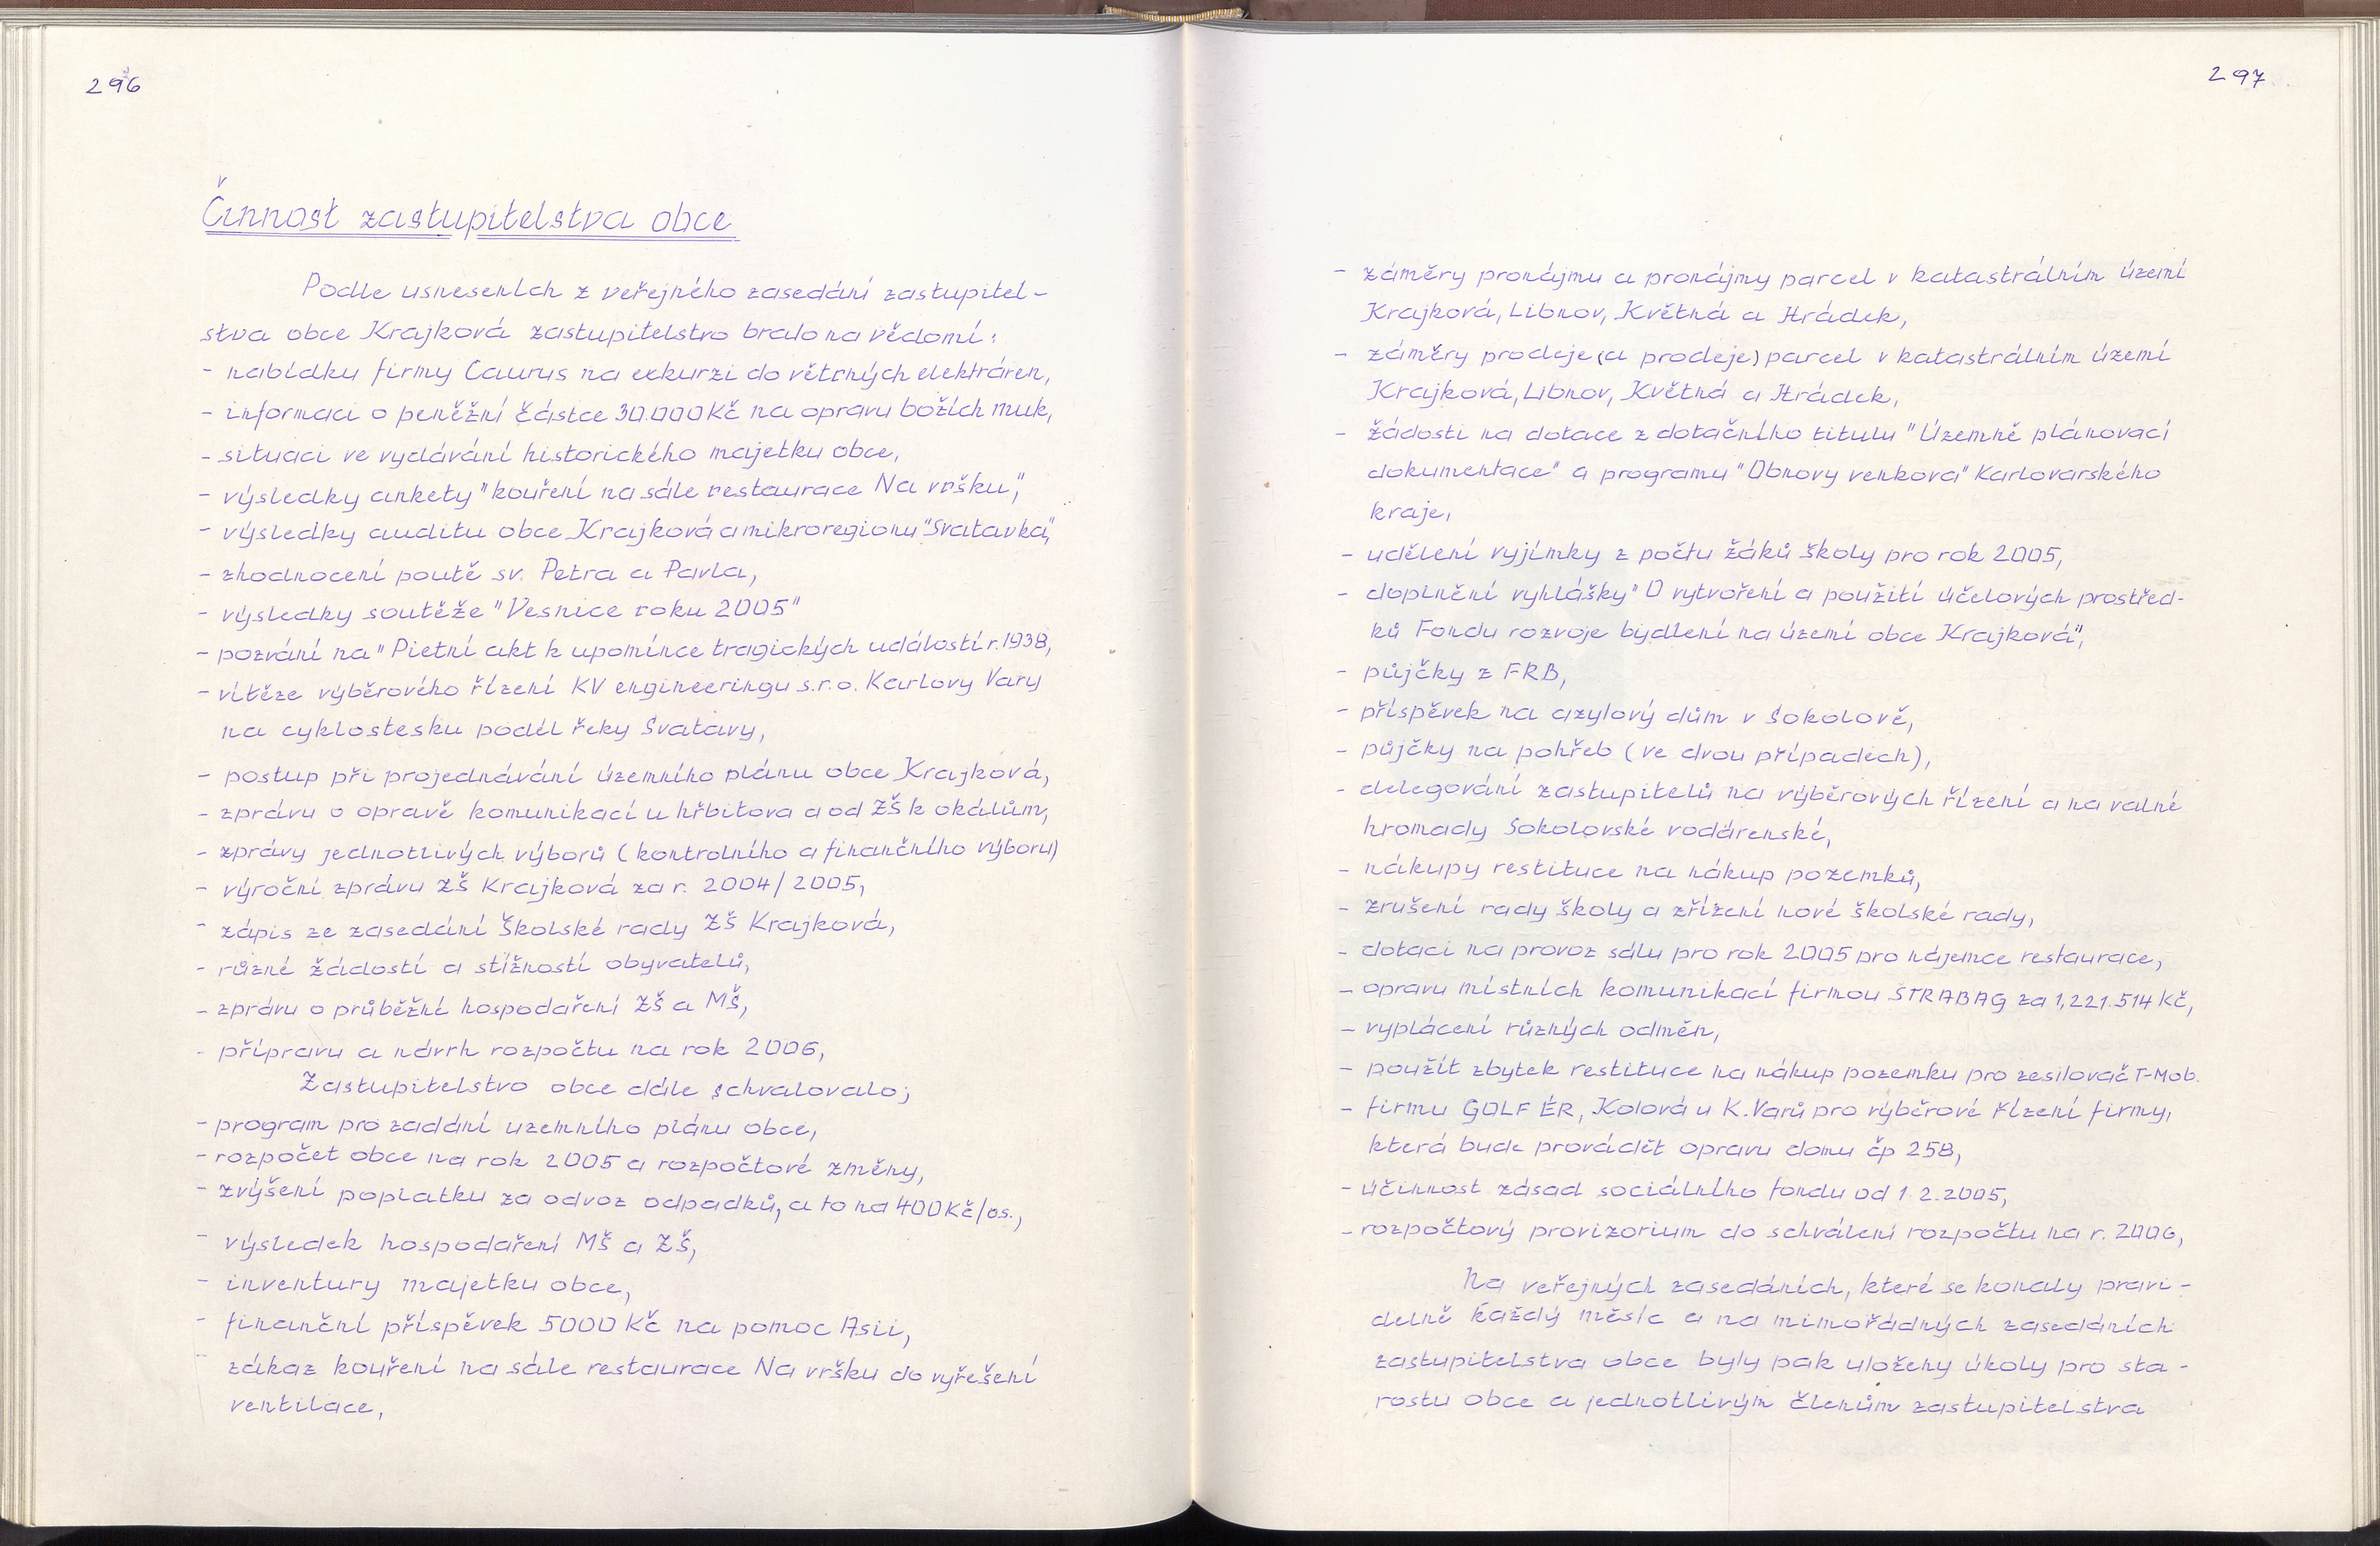 296
Činnost zastupitelstva obce
Podle usneseních z veřejného zasedání zastupitel-
stva obce Krajková zastupitelstvo bralo na vědomí:
- nabídku firmy Caurus na exkurzi do větrných elektráren,
- informaci o peněžní částce 30.000 Kč na opravu božích muk,
- situaci ve vydávání historického majetku obce,
- výsledky ankety "kouření na sále restaurace Na vršku",
- výsledky auditu obce Krajková a mikroregionu "Svatavka",
- zhodnocení poutě sv. Petra a Pavla,
- výsledky soutěže "Vesnice roku 2005"
- pozvání na "Pietní akt k upomínce tragických událostí r. 1938,
- vítěze výběrového řízení KV engineeringu s.r.o. Karlovy Vary
na cyklostesku podél řeky Svatavy,
- postup při projednávání územního plánu obce Krajková,
- zprávu o opravě komunikací u hřbitova a od ZŠ k okálům,
- zprávy jednotlivých výborů (kontrolního a finančního výboru)
- výroční zprávu ZŠ Krajková za r. 2004/2005,
- zápis ze zasedání školské rady ZŠ Krajková,
- různé žádostí a stížností obyvatelů,
- zprávu o průběžní hospodaření ZŠ a MŠ,
- přípravu a návrh rozpočtu na rok 2006,
Zastupitelstvo obce dále schvalovalo;
- program pro zadání uzemního plánu obce,
- rozpočet obce na rok 2005 a rozpočtové změny,
- zvýšení poplatku za odvoz odpadků, a to na 400 Kč/os.,
- výsledek hospodaření MŠ a ZŠ,
- inventury majetku obce,
- finanční příspěvek 5000 Kč na pomoc Asii,
- zákaz kouření na sále restaurace Na vršku do vyřešení
ventilace,
297
- záměry pronájmu a pronájmy parcel v katastrálním území
Krajková, Libnov, Květná a Hrádek,
- záměry prodeje (a prodeje) parcel v katastrálním území
Krajková, Libnov, Květná a Hrádek,
- žádosti na dotace z dotačního titulu "Územně plánovací
dokumentace" a programu "Obnovy venkova" Karlovarského
kraje,
- udělení vyjímky z počtu žáků školy pro rok 2005,
- doplnění vyhlášky "O vytvoření a použití účelových prostřed-
ků Fondu rozvoje bydlení na území obce Krajková",
- půjčky z FRB,
- příspěvek na azylový dům v Sokolově,
- půjčky na pohřeb (ve dvou případech),
- delegování zastupitelů na výběrových řízení a na valné
hromady Sokolovské vodárenské,
- nákupy restituce na nákup pozemků,
- zrušení rady školy a zřízení nové školské rady,
- dotaci na provoz sálu pro rok 2005 pro nájemce restaurace,
- opravu místních komunikací firmou STRABAG za 1,221.514 Kč,
- vyplácení různých odměn,
- použít zbytek restituce na nákup pozemku pro zesilovač T-Mob.
- firmu GOLF ÉR, Kolová u K. Varů pro výběrové řízení firmy,
která bude provádět opravu domu čp 258,
- účinnost zásad sociálního fondu od 1.2.2005,
- rozpočtový provizorium do schválení rozpočtu na r. 2006,
Na veřejných zasedáních, které se konaly pravi-
delně každý měsíc a na mimořádných zasedáních
zastupitelstva obce byly pak uloženy úkoly pro sta-
rostu obce a jednotlivým členům zastupitelstva